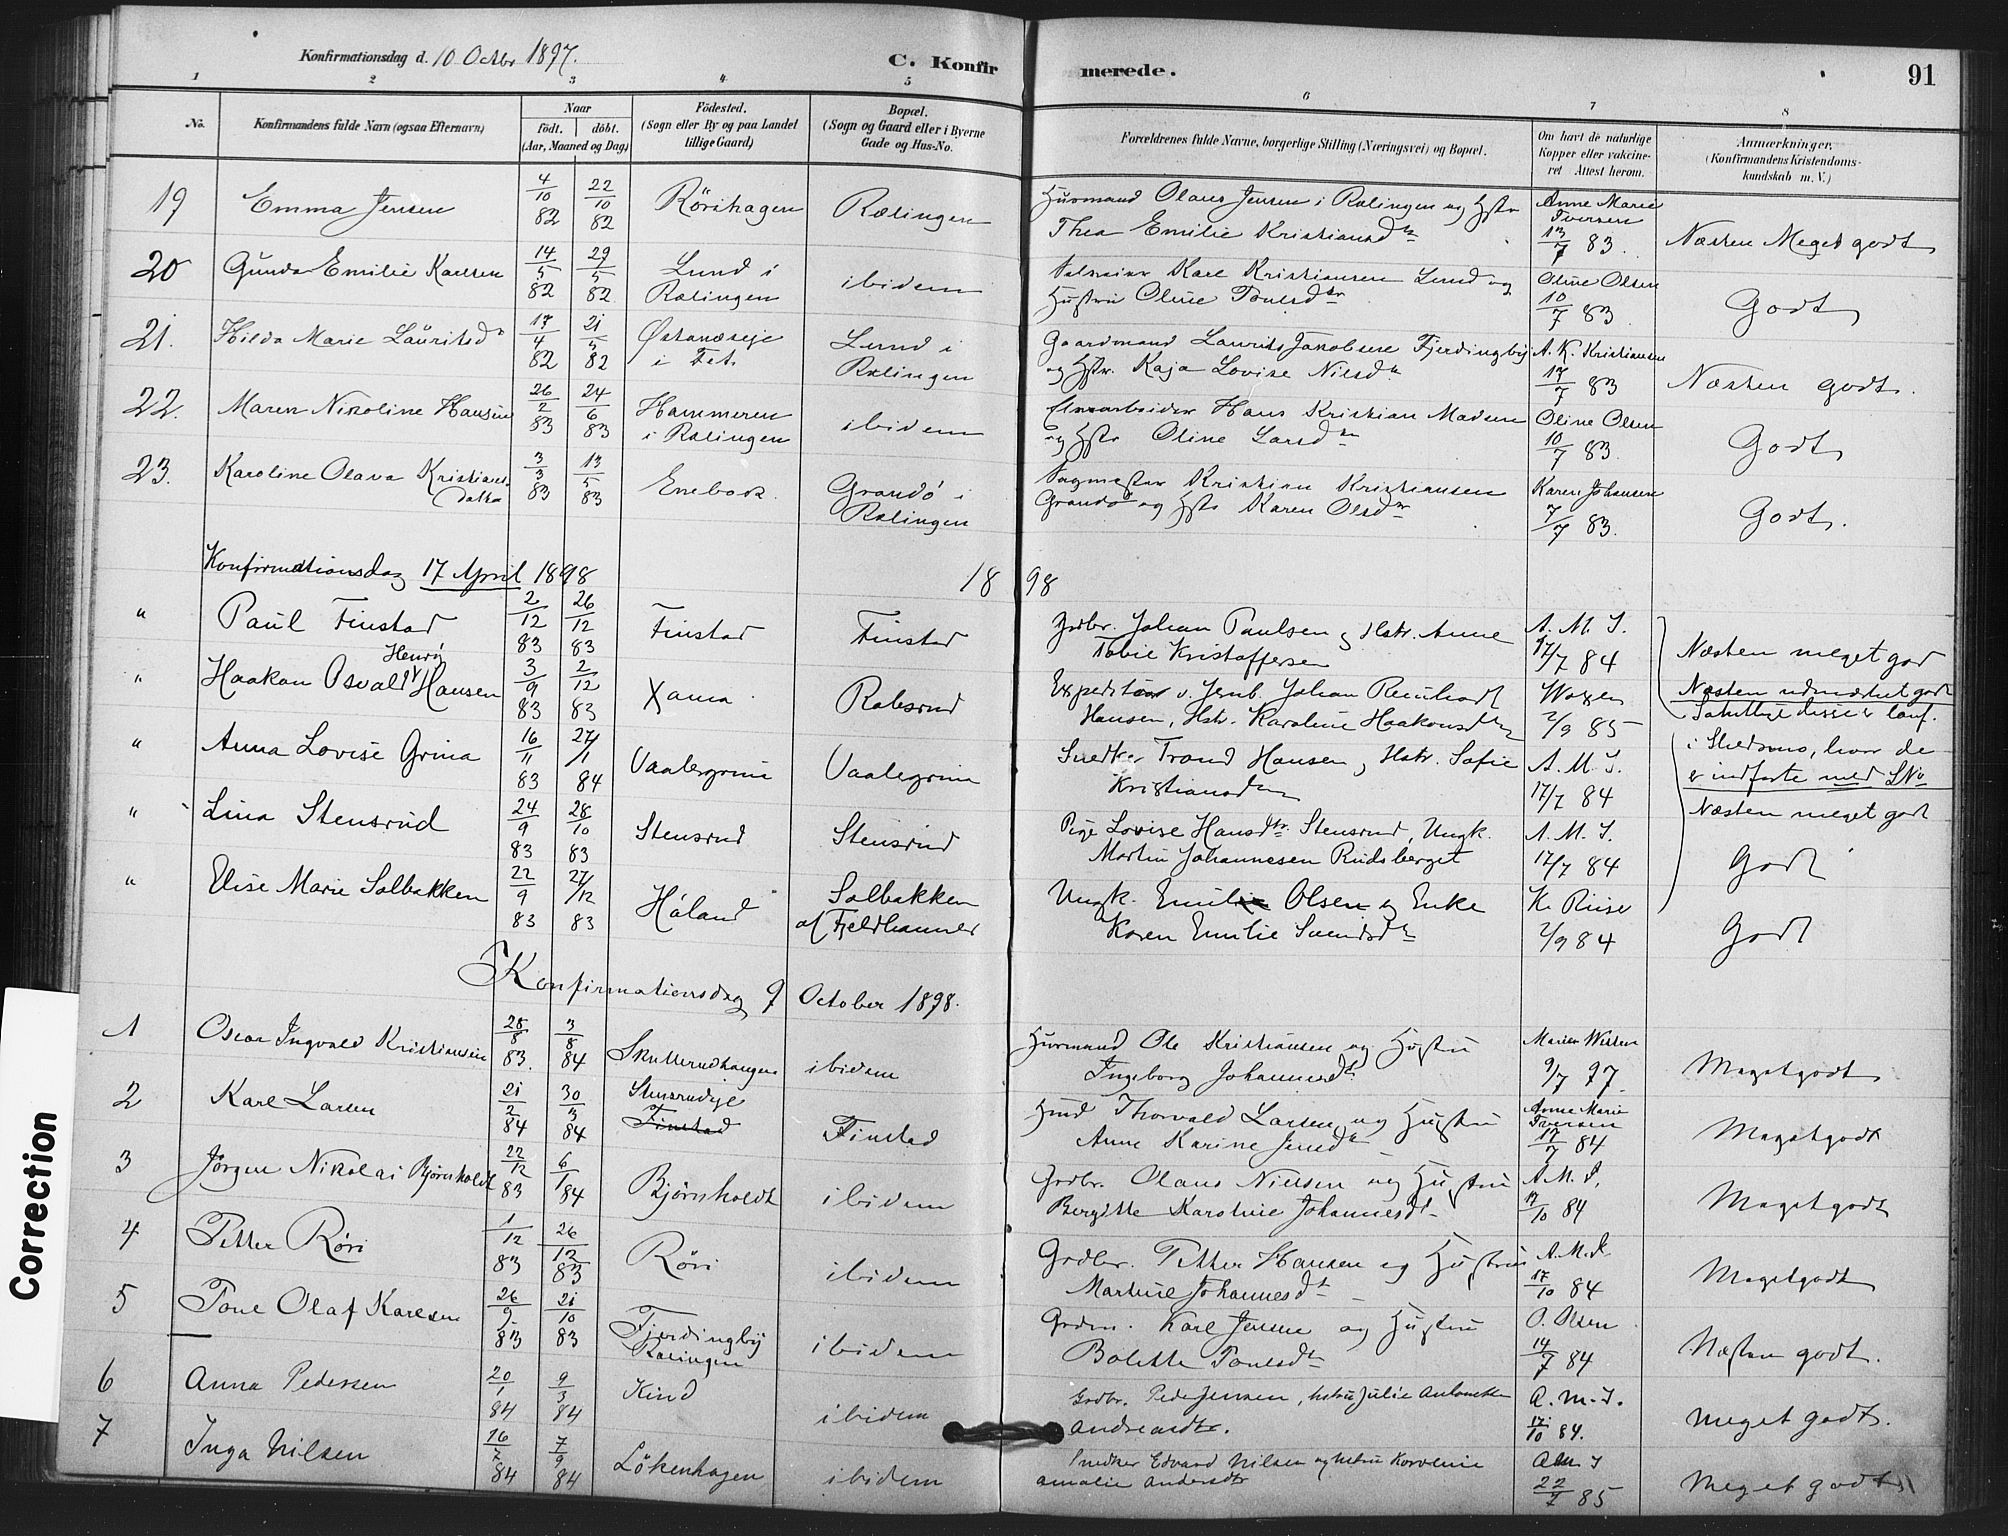 Konfirmationsdag d. 10 Octbr 1897.
C. Konfirmerede.
91
1 2 3 4 5 6 7 8
No.
Konfirmandens fulde Navn (ogsaa Efternavn)
Naar
født. döbt.
(Aar, Maaned og Dag)
Födested.
(Sogn eller By og paa Landet
tillige Gaard)
Bopæl.
(Sogn og Gaard eller i Byerne
Gade og Hus-No.
Forældrenes fulde Navne, borgerlige Stilling (Næringsvei) og Bopæl.
Om havt de naturlige
Kopper eller vakcine-
ret Attest herom.
Anmærkninger,
(Konfirmandens Kristendoms-
kundskab m. V.)
19 Emma Jensen 4/10 82 22/10 82 Rörihagen Rælingen Husmand Olaus Jensen i Rælingen og Hstr Anne Marie Iversen
Thea Emilie Kristiansdtr 13/7 83. Næsten Meget godt
20 Gunda Emilie Karlsen 14/5 82 29/5 82 Lund i Rælingen ibidem Karl Kristiansen Lund og Oline Olsen
Hustru Oline Paulsdtr 10/7 83 Godt
21. Hilda Marie Lauritsdr 17/4 82 21/5 82 i Fet. Lund i Rælingen Gaardmand Laurits Jakobsen Fjerdingby A. K. Kristiansen
og Hstr. Kaja Lovise Nilsdtr 17/7 83 Næsten godt.
22. Maren Nikoline Hansen 26/2 83 24/6 83 Hammeren i Rælingen ibidem Hans Kristian Madsen Oline Olsen
og Hstr Oline Larsdtr 10/7 83 Godt
23. Karoline Olava Kristiansdatter 3/3 83 13/5 83 Enebak. Grandø i Rælingen Sagmester Kristian Kristiansen Karen Johansen
Grandø og Hstr Karen Olsdtr 7/7 83. Godt.
Konfirmationsdag 17 April 1898
18 98
" Paul Finstad 2/12 83 26/12 83 Finstad Finstad Gdbr. Johan Paulsen og Hstr. Anne A. M. I.
Tobie Kristoffersen 17/7 84 Næsten meget god
" Haakon Osvald Henry Hansen 3/9 83 2/12 83 Xania Ralesrud Expeditør v. Jenb. Johan Reinhadt
Hansen, Hstr. Karoline Haakonsdtr 2/9 85 Næsten udmærket godt
Samtlige disse er konf.
" Anna Lovise Grina 16/11 83 27/1 84 Vaalegrina Snedker Trond Hansen, Hstr. Sofie A. M. I.
Kristiansdtr 17/7 84 i Skedsmo, hvor de
er indførte med SNo
" Lina Stensrud 24/9 83 28/10 83 Stensrud Stensrud Pige Lovise Hansdtr. Stensrud, Ungk. A. M. I.
Martin Johannesen Rudsberget 17/7 84 Næsten meget godt
Godt
" Elise Marie Solbakken 22/9 83 27/12 83 Høland Solbakken af Fjeldhammer Ungk. Emil Olsen og Enke
Karen Emilie Svendsdtr 2/9 84 Godt
Konfirmationsdag 9 October 1898.
1 Oscar Ingvald Kristiansen 28/8 83. 3/8 84 Skutterudhaugen ibidem Husmand Ole Kristiansen og Hustru
Ingeborg Johannesdt. 9/7 97. Megetgodt
2 Karl Larsen 21/2 84 30/3 84 Stensrudeje Finstad Finstad Hmd Thorvald Larsen og Hustru Anne Marie Iversen
Anne Karine Jensdtr 17/7 84 Megetgodt
3 Jörgen Nikolai Bjørnholdt 22/12 83 6/1 84 Bjørnholdt ibidem Grdbr. Olaus Nielsen og Hustru A. M. I.
Bergitte Karoline Johannesdt 17/10 84 Megetgodt
4 Petter Röri 1/12 83 26/12 83 Röri ibidem Grdbr. Petter Hansen og Hustru A. M. I.
Martine Johannesdt 17/10 84 Megetgodt
5 Poul Olaf Karlsen 26/9 83 21/10 83 Fjerdingby Rælingen ibidem Grdm. Karl Jensen og Hustru O. Olsen
Bolette Poulsdtr 14/7 84 Næsten godt.
6 Anna Pedersen 20/1 84 9/3 84 Kind ibidem Grdbr. Peder Jensen, hstru Julie Antonette A. M. I.
Andreasdtr. 17/10 84. Meget godt.
7 Inga Nilsen 16/7 84 7/9 84 Lökenhagen ibidem Snedker Edvard Nilsen og hstru Korvenie A M I
Amalie Andersdtr 22/7 85 Meget godt
Correction